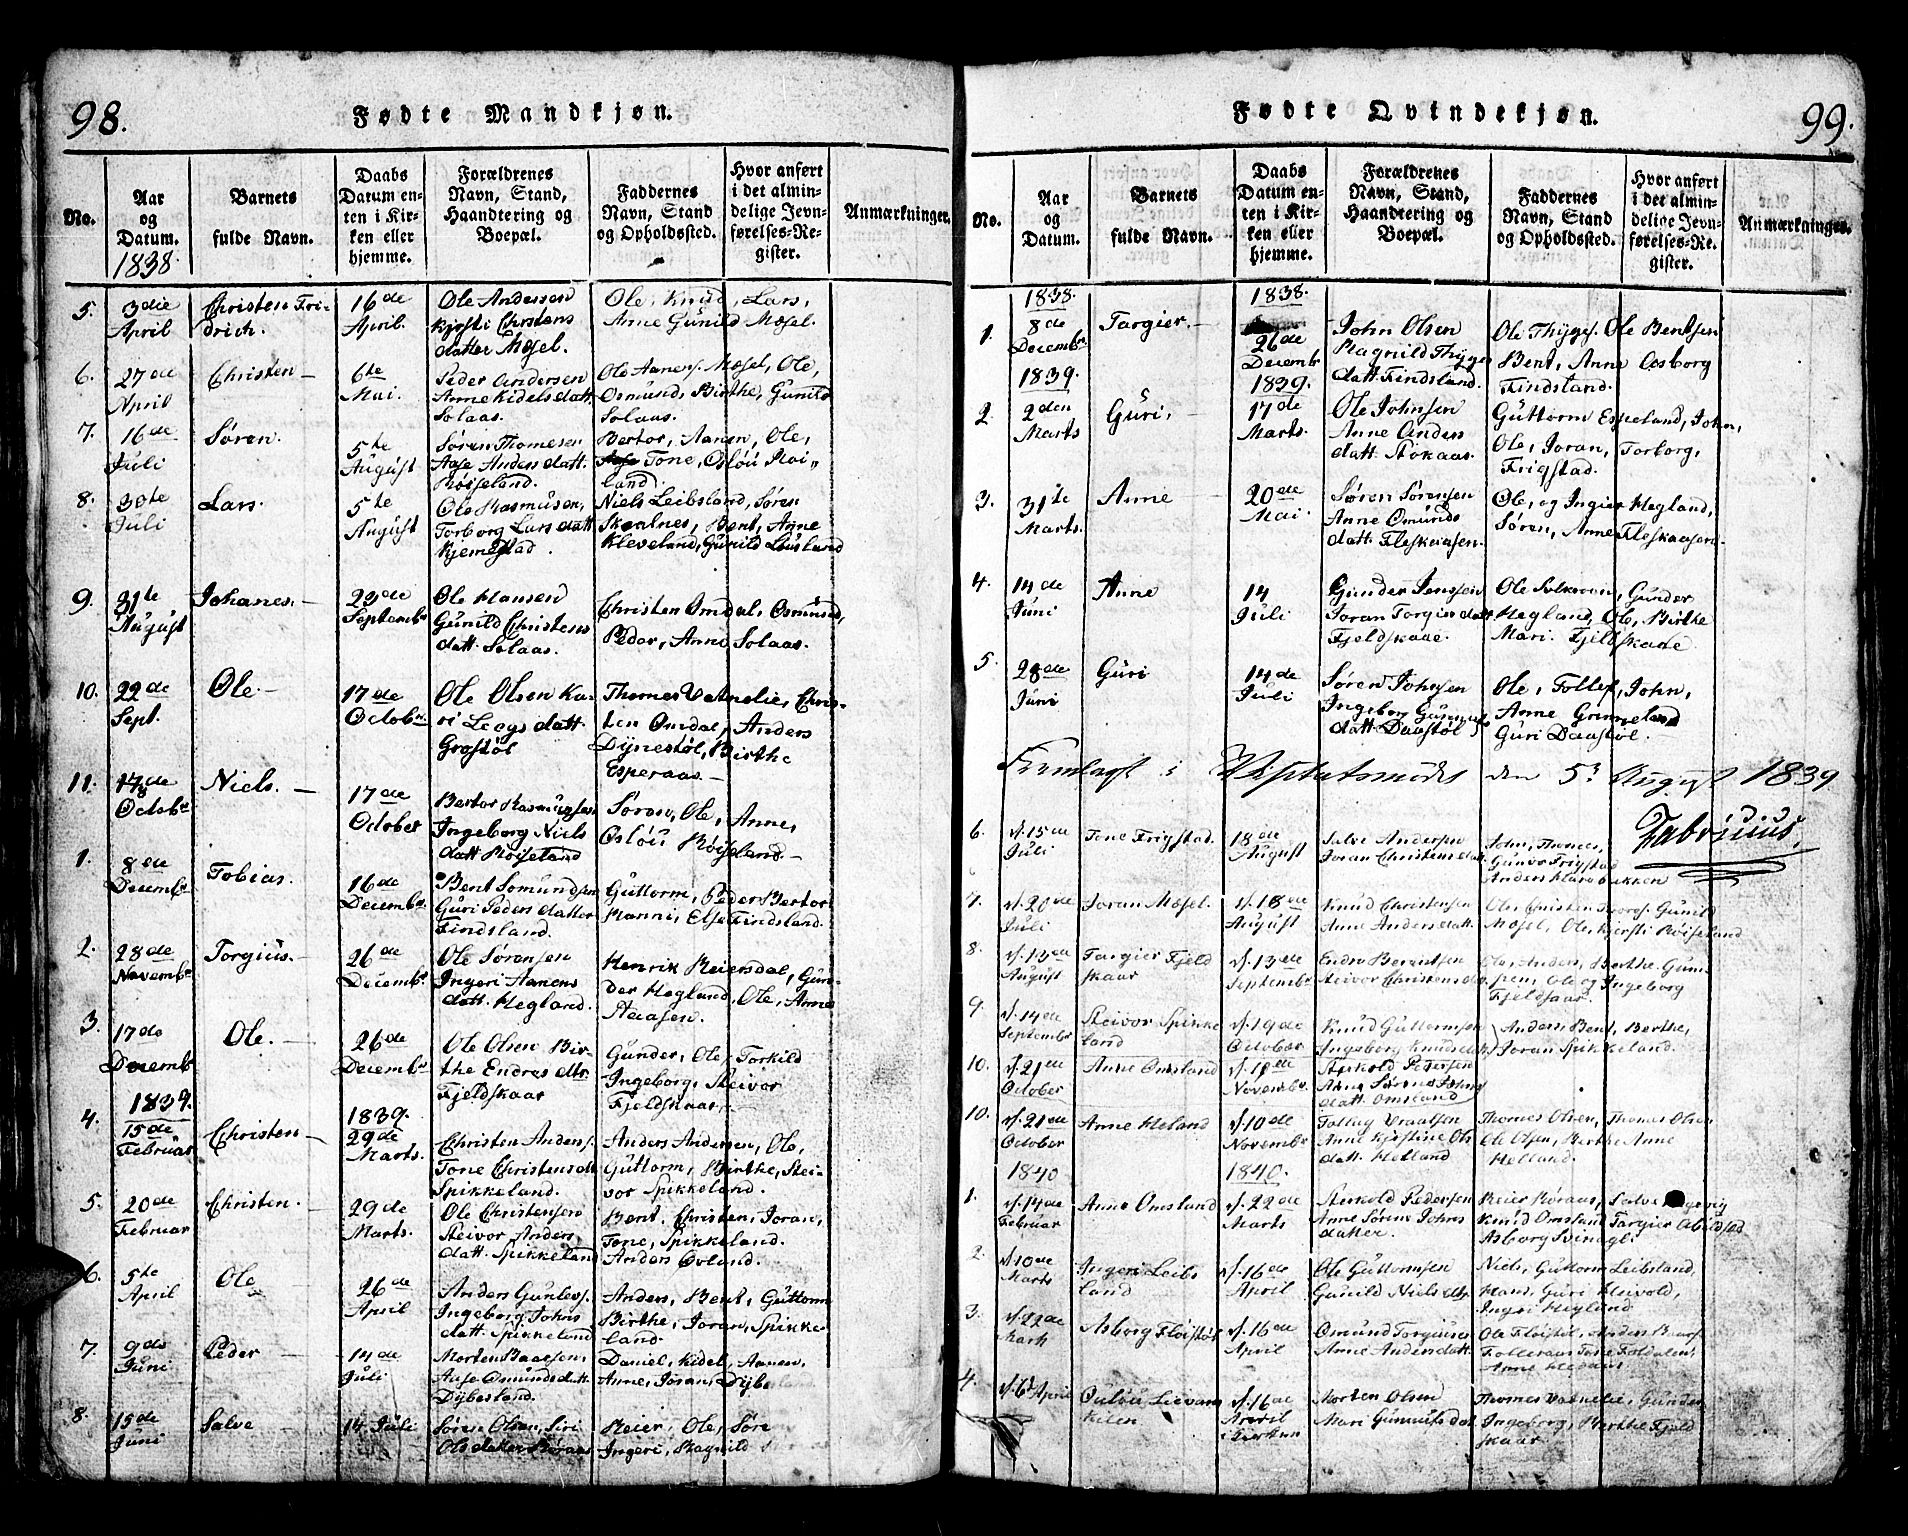 98.
Fødte Mandkjøn.
No.
Aar
og
Datum.
1838.
Barnets
fulde Navn.
Daabs
Datum en-
ten i Kir-
ken eller
hjemme.
Forældrenes
Navn, Stand,
Haandtering og
Boepæl.
Faddernes
Navn, Stand
og Opholdssted.
Hvor anført
i det almin-
delige Jevn-
førelses-Re-
gister.
Anmærkninger.
5.
3die
April
Christen Fri-
drich.
16de
April.
Ole Andersen
Kjersti Christens
datter Mosel.
Ole, Knud, Lars,
Anne Gunild Mosel.
6.
27de
April
Christen
6te
Mai.
Peder Andersen
Anne Kidels datt.
Solaas.
Ole Aanens. Mosel, Ole,
Osmund, Birthe, Gunild
Solaas.
7.
16de
Juli
Søren.
5te
August
Søren Thomesen
Aase Anders datt.
Røiseland.
Bertor, Aanen, Ole,
Tone, Oslou Roi„
land.
8.
30te
Juli
Lars.
5te
August
Ole Rasmusen,
Torborg Lars datt
Kjemestad.
Niels Leibsland, Søren
Skealnes, Bent, Anne
Kleveland, Gunild Leibsland
9.
31te
August
Johanes.
23de
Septembr
Ole Hansen
Gunild Christens
datt. Solaas.
Christen Omdal, Osmund,
Peder, Anne Solaas.
10.
22de
Sept.
Ole
17de
Octobr.
Ole Olsen Ka-
ri Legs datt.
Grostøl
Thomes Vatnelie, Chris-
ten Omdal, Anders
Dynestøl, Birthe
Esperaas
11.
17de
Octobr
Niels.
17de
October
Bertor Rasmusen
Ingeborg Niels
datt Røiseland
Søren, Ole, Anne,
Oslou Røiseland
1.
8de
Decembr
Tobias.
16de
Decembr
Bent Somundsen
Guri Peders datter
Findsland.
Guttorm, Peder Bertor
Hanne, Else Findsland.
2.
28de
Novembr
Torgius.
26de
Decembr
Ole Sørensen
Ingeri Aanens
datt. Hegland.
Henrik Reiersdal, Gun-
der Hegland, Ole, Anne
Aasen.
3.
17de
Decembr
Ole.
26de
Decembr
Ole Olsen Bir-
the Endres dtr
Fjeldskaar
Gunder, Ole, Torkild
Ingeborg, Steivor
Fjeldskaar.
1839.
4.
15de
Februar
Christen
1839.
29de
Marts.
Christen Anders.
Tone Christens dt
Spikkeland.
Anders Andersen, Ole,
Guttorm, Birthe, Stei-
vor Spikkeland.
5.
20de
Februar
Christen.
29de
Marts.
Ole Christensen
Steivor Anders
datt. Spikkeland
Bent, Christen, Joran,
Tone, Spikkeland.
Anders Ovland.
6.
5te
April
Ole
26de
April
Anders Gunlevs.
Ingeborg Johns
datt. Spikkeland
Anders, Bent, Guttorm
Birthe, Joran, Spikke-
land.
7.
9de
Juni
Peder
14de
Juli
Morten Baaesen,
Aase Omunds datt
Dybesland.
Daniel, Kidel, Aanen,
Anne, Joran, Dybesland
8.
15de
Juni
Salve
14 Juli
Søren Olsen, Siri
Ols datter Røraas
Reier, Ole, Søre
Ingeri, Ragnild
Fødte Qvindekjøn.
99.
No.
Aar
og
Datum.
Barnets
fulde Navn.
Daabs
Datum en-
ten i Kir-
ken eller
hjemme.
Forældrenes
Navn, Stand,
Haandtering og
Boepæl.
Faddernes
Navn, Stand
og Opholdssted.
Hvor anført
i det almin-
delige Jevn-
førelses-Re-
gister.
Anmærkninger.
1838.
1.
8de
Decembr
Targier.
1838.
26de
Decembr
John Olsen
Ragnild Thyges
datt. Findsland.
Ole Thyges. Ole Bentsen
Bent, Anne Aasborg
Findsland.
1839.
2.
2den
Marts
Guri.
1839.
17de
Marts.
Ole Johnsen
Anne Anders
datt. Stokaas.
Guttorm Espeland, John,
Ole, Joran, Torborg,
Frigstad.
3.
31te
Marts.
Anne
20de
Mai
Søren Sørensen
Anne Omunds
datt. Fleskaasen.
Ole, og Ingier Hegland,
Søren, Anne Fleskaasen
4.
14de
Juni
Anne
14
Juli
Gunder Jenssen
Joran Torgiers datt
Fjeldskaae.
Ole, Gunder
Hegland, Ole, Birthe
Mari. Fjeldskaae.
5.
28de
Juni
Guri
14de
Juli
Søren Johnsen
Ingeborg Gunnuls
datt. Daastøl
Ole, Tollef, John,
Anne Grinneland
Guri Daastøl.
Fremlagt i Visitatsmødet den 5t August 1839
Fabricius.
6.
d. 15de
Juli
Tone Frigstad.
18de
August
Salve Andersen
Joran Christens datt
John, Thomes,
Gunvor Frigstad
Anders Harebakken
7.
d. 20de
Juli
Joran Mosel.
d. 18de
August
Knud Christensen
Anne Anders datt.
Ole, Christen, Gunild
Mosel, Ole, Kjersti Røiseland
8.
d. 13de
August
Targier Fjeld
skaar
d. 13de
Septembr
Endre Berentsen
Steivor Christens dtr
Ole, Anders, Berthe Gun-
Ole og Ingeborg
Fjeldsaar.
9.
d. 14de
Septembr
Steivor Spikke
land
d. 19de
October
Knud Guttormsen
Ingeborg Knuds datt
Anders Bent, Berthe,
Joran Spikkeland.
10.
d. 21de
October
Anne Omsland
d. 10de
Novembr.
Sterkold Pedersen
Anne Sørens Johns
datt. Omsland
10.
d. 21de
October
Anne Heland
d. 10de
Novembr
Tollug Vraalsen
Anne Kjerstine Ols
datt. Helland
Thomes Olsen, Thomes Olsen
Ole Olsen, Berthe Anne
Helland.
1840
1.
d. 14de
Februar
Anne Omsland
1840.
d. 22de
Marts
Sterkold Pedersen
Anne Sørine Johns
datter.
Reier Røraas, Salve
Knud Omsland Targier
Asborg Svinagl
2.
d. 10de
Marts
Ingeri Leibs
land
d. 16de
April
Ole Guttormsen
Gunild Niels dtr.
Niels, Guttorm Leibsland,
Hans, Guri Heivold,
Ingri Hegland
3.
d. 22de
Marts
Asborg Fløistøl
d. 16de
April
Omund Torgiusen
Anne Anders datt
Ole Fløistøl, Anders
Tone
Anne
4.
d. 6t April
d. 16de
April
Morten Olsen
Mari Gunnuls dat
Thomes Vatnelie, Gunder
Ingeborg, Berthe Fjeld
skaar.